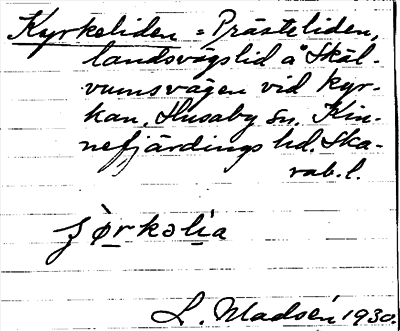 Kyrkeliden = Prästeliden,
landsvägslid å Skäl-
vumsvägen vid kyr-
kan. Husaby sn. Kin-
nefjärdings hd. Ska-
rab. l.
L. Madsén 1930.